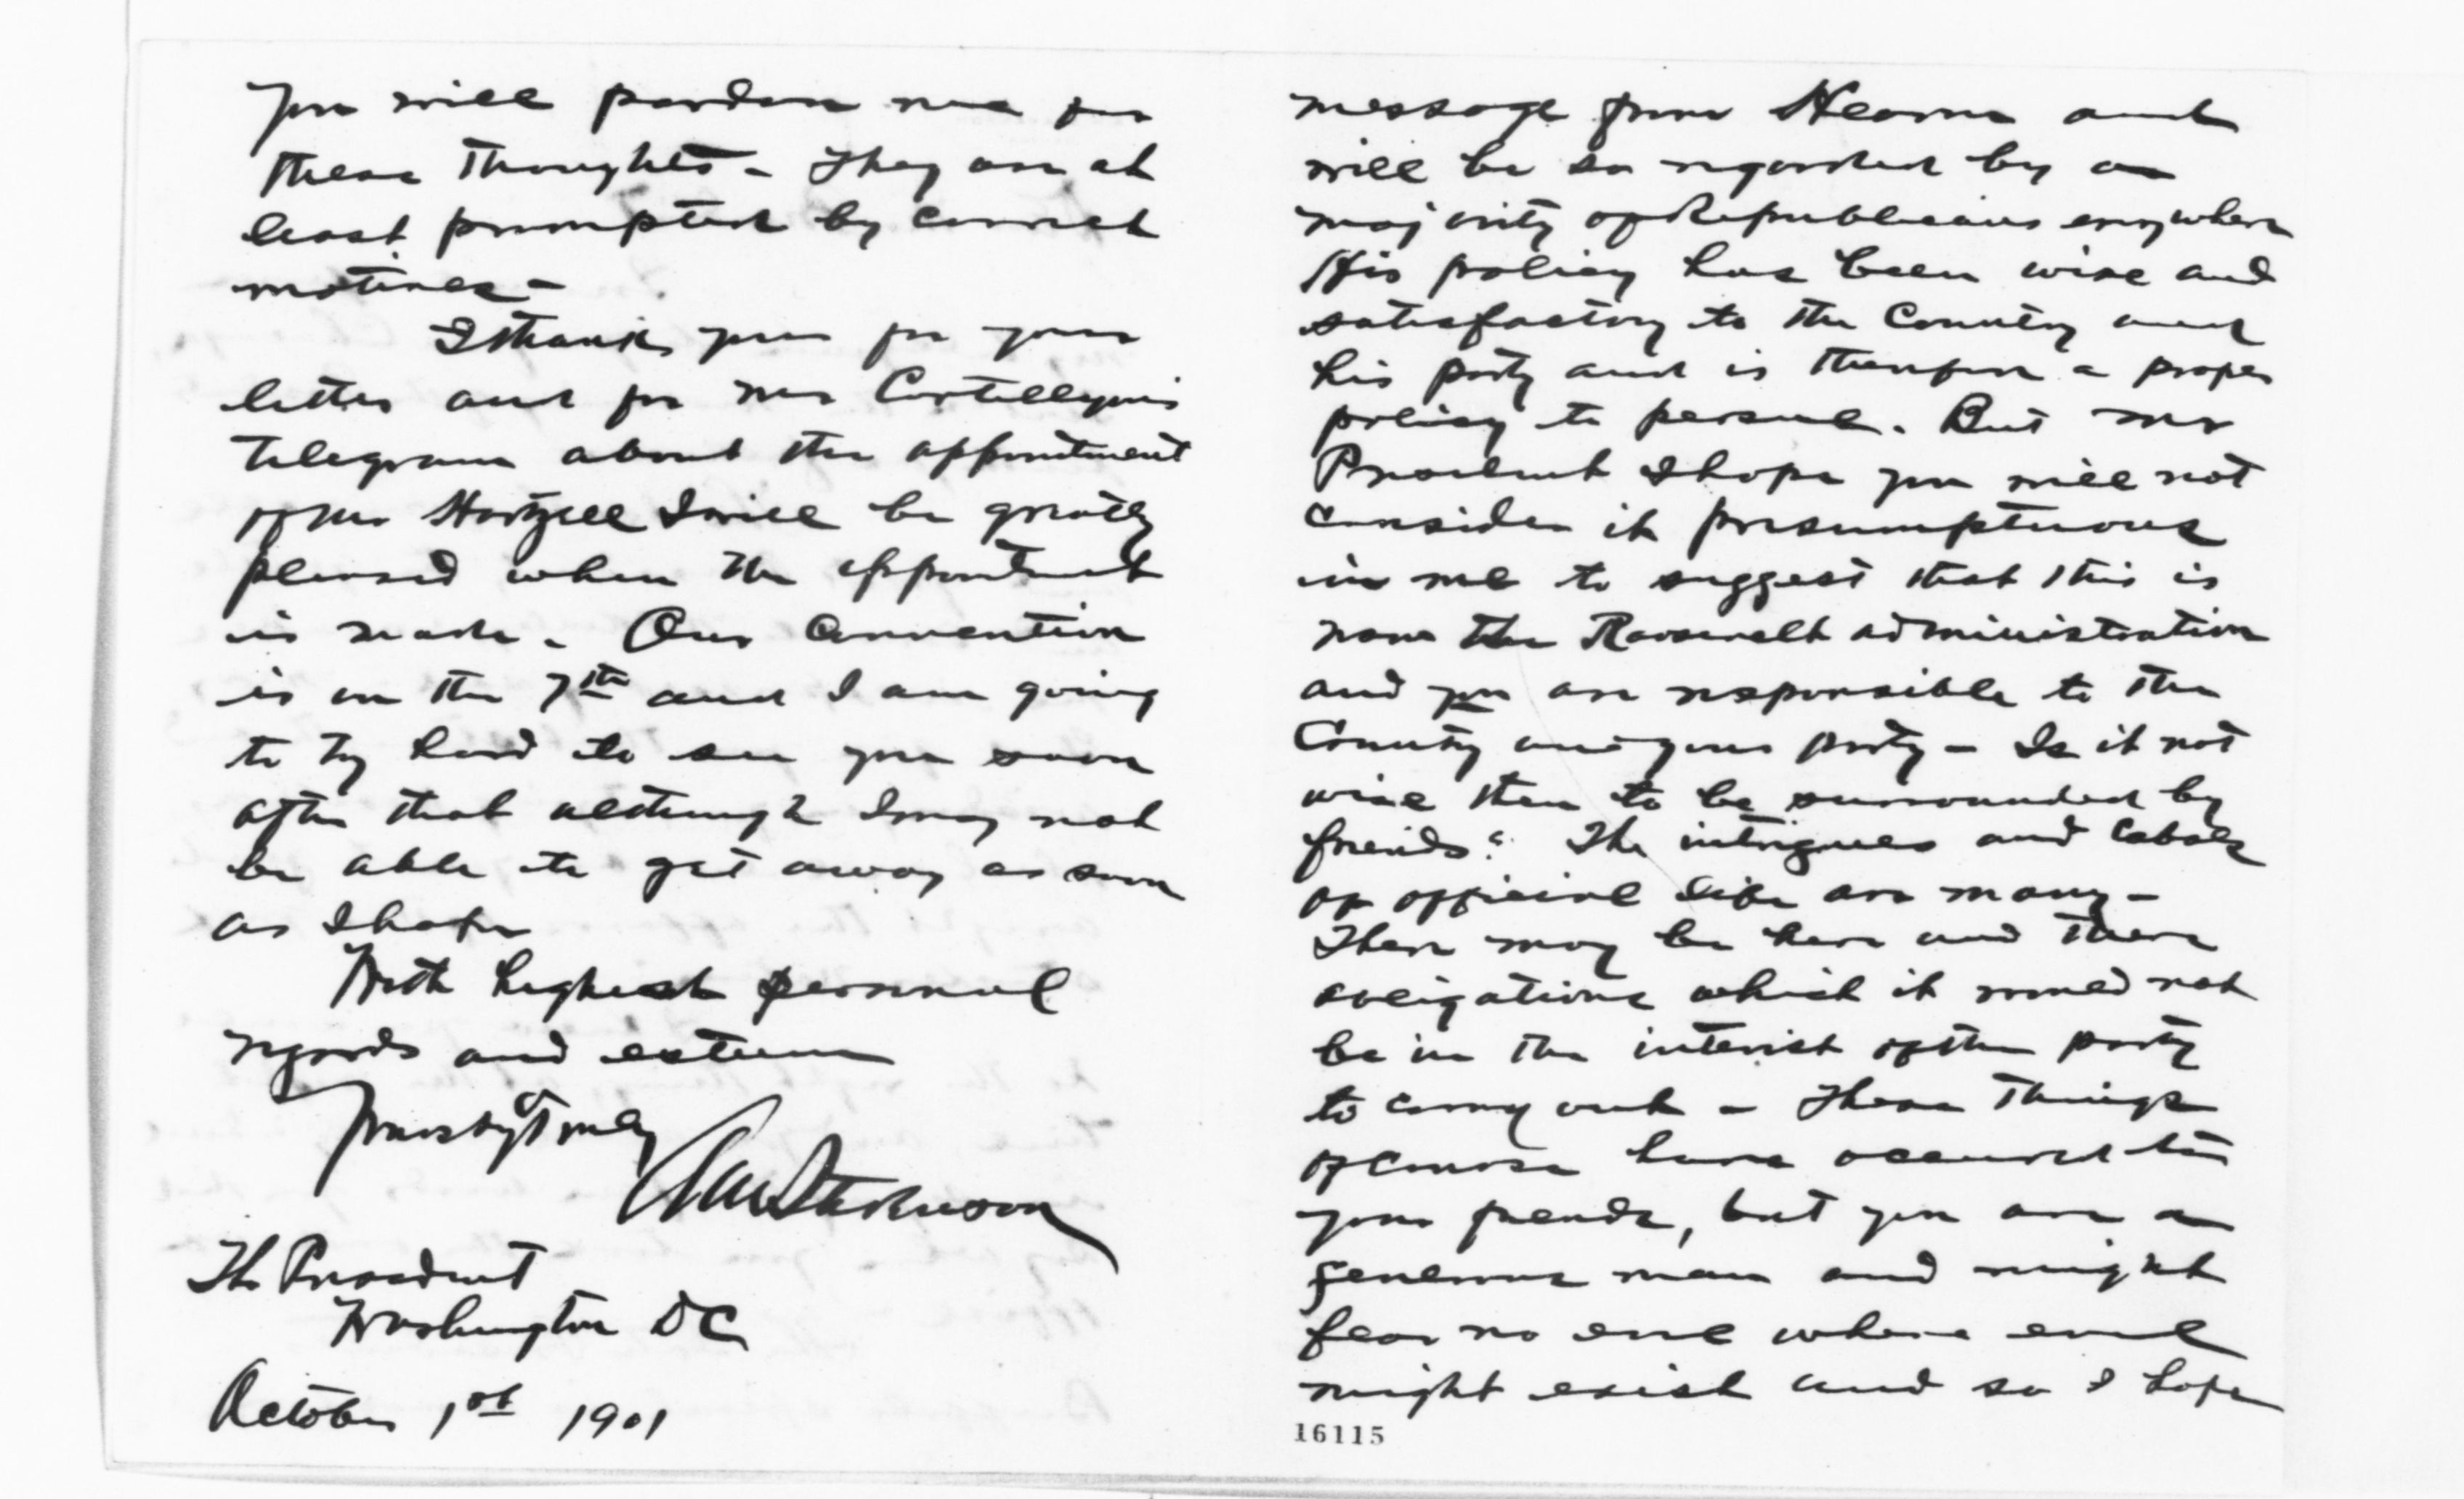 you will pardon me for
these thoughts - They are at
least prompted by correct
motives -
I thank you for your
letter and for Mr Cortellyou's
telegram about the appointment
of Mr Hartzell I will be greatly
pleased when the appointment
is made. Our Convention
is on the 7th and I am going
to try hard to see you soon
after that although I may not
be able to get away as soon
as I hope
With highest personal
regards and esteem
Yours very Truly
The President
Washington DC
October 1st 1901
message from Heaven and
will be so regarded by a
majority of Republicans everywhere
His policy has been wise and
satisfactory to the Country and
his party and is therefore a proper
policy to persue. But Mr
President I hope you will not
consider it presumptuous
in me to suggest that this is
now the Roosevelt administration
and you are responsible to the
Country and your party - Is it not
wise then to be surrounded by
friends? The intrigues and Cabals
of official life are many -
There may be here and there
obligations which it would not
be in the interest of the party
to carry out - These things
of course have occurred to
your friends, but you are a
generous man and might
fear no evil where evil
might exist and so I hope
16115